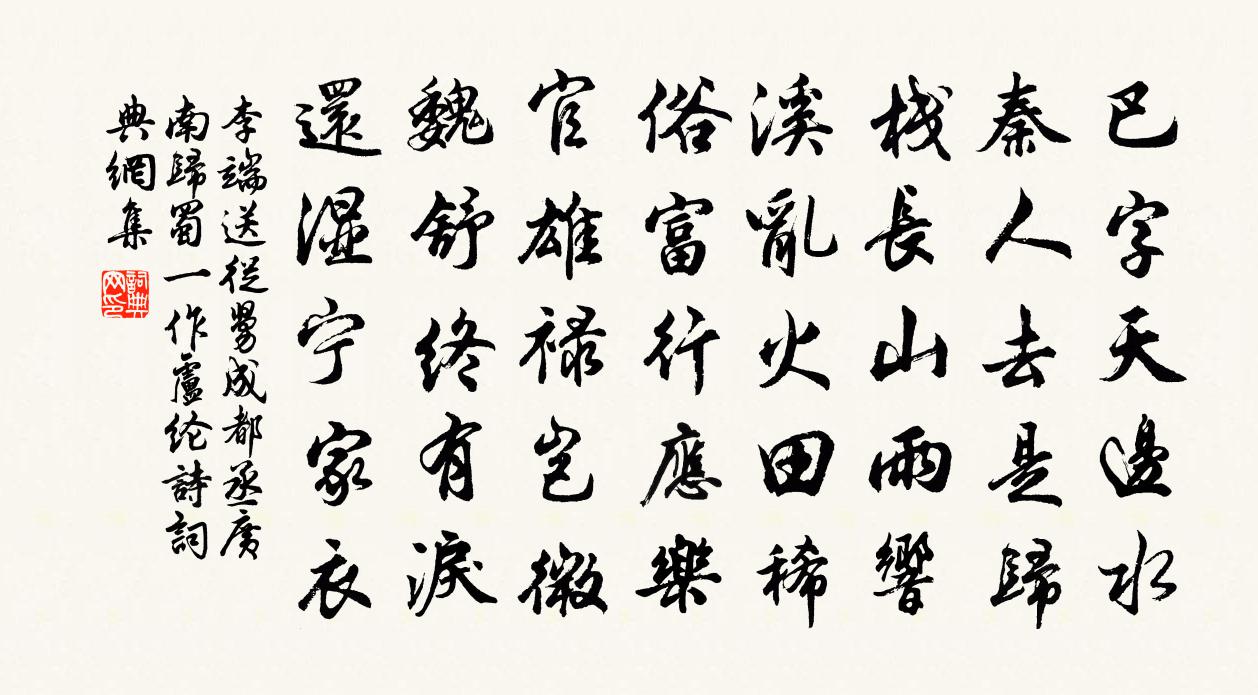 巴字天邊水
秦人去是歸
棧長山雨響
溪亂火田稀
俗富行應樂
官雄祿豈微
魏舒终有淚
還湿宁家衣
李端送從舅成都丞廣
南歸蜀一作盧纶詩詞
典網集
詞典網印